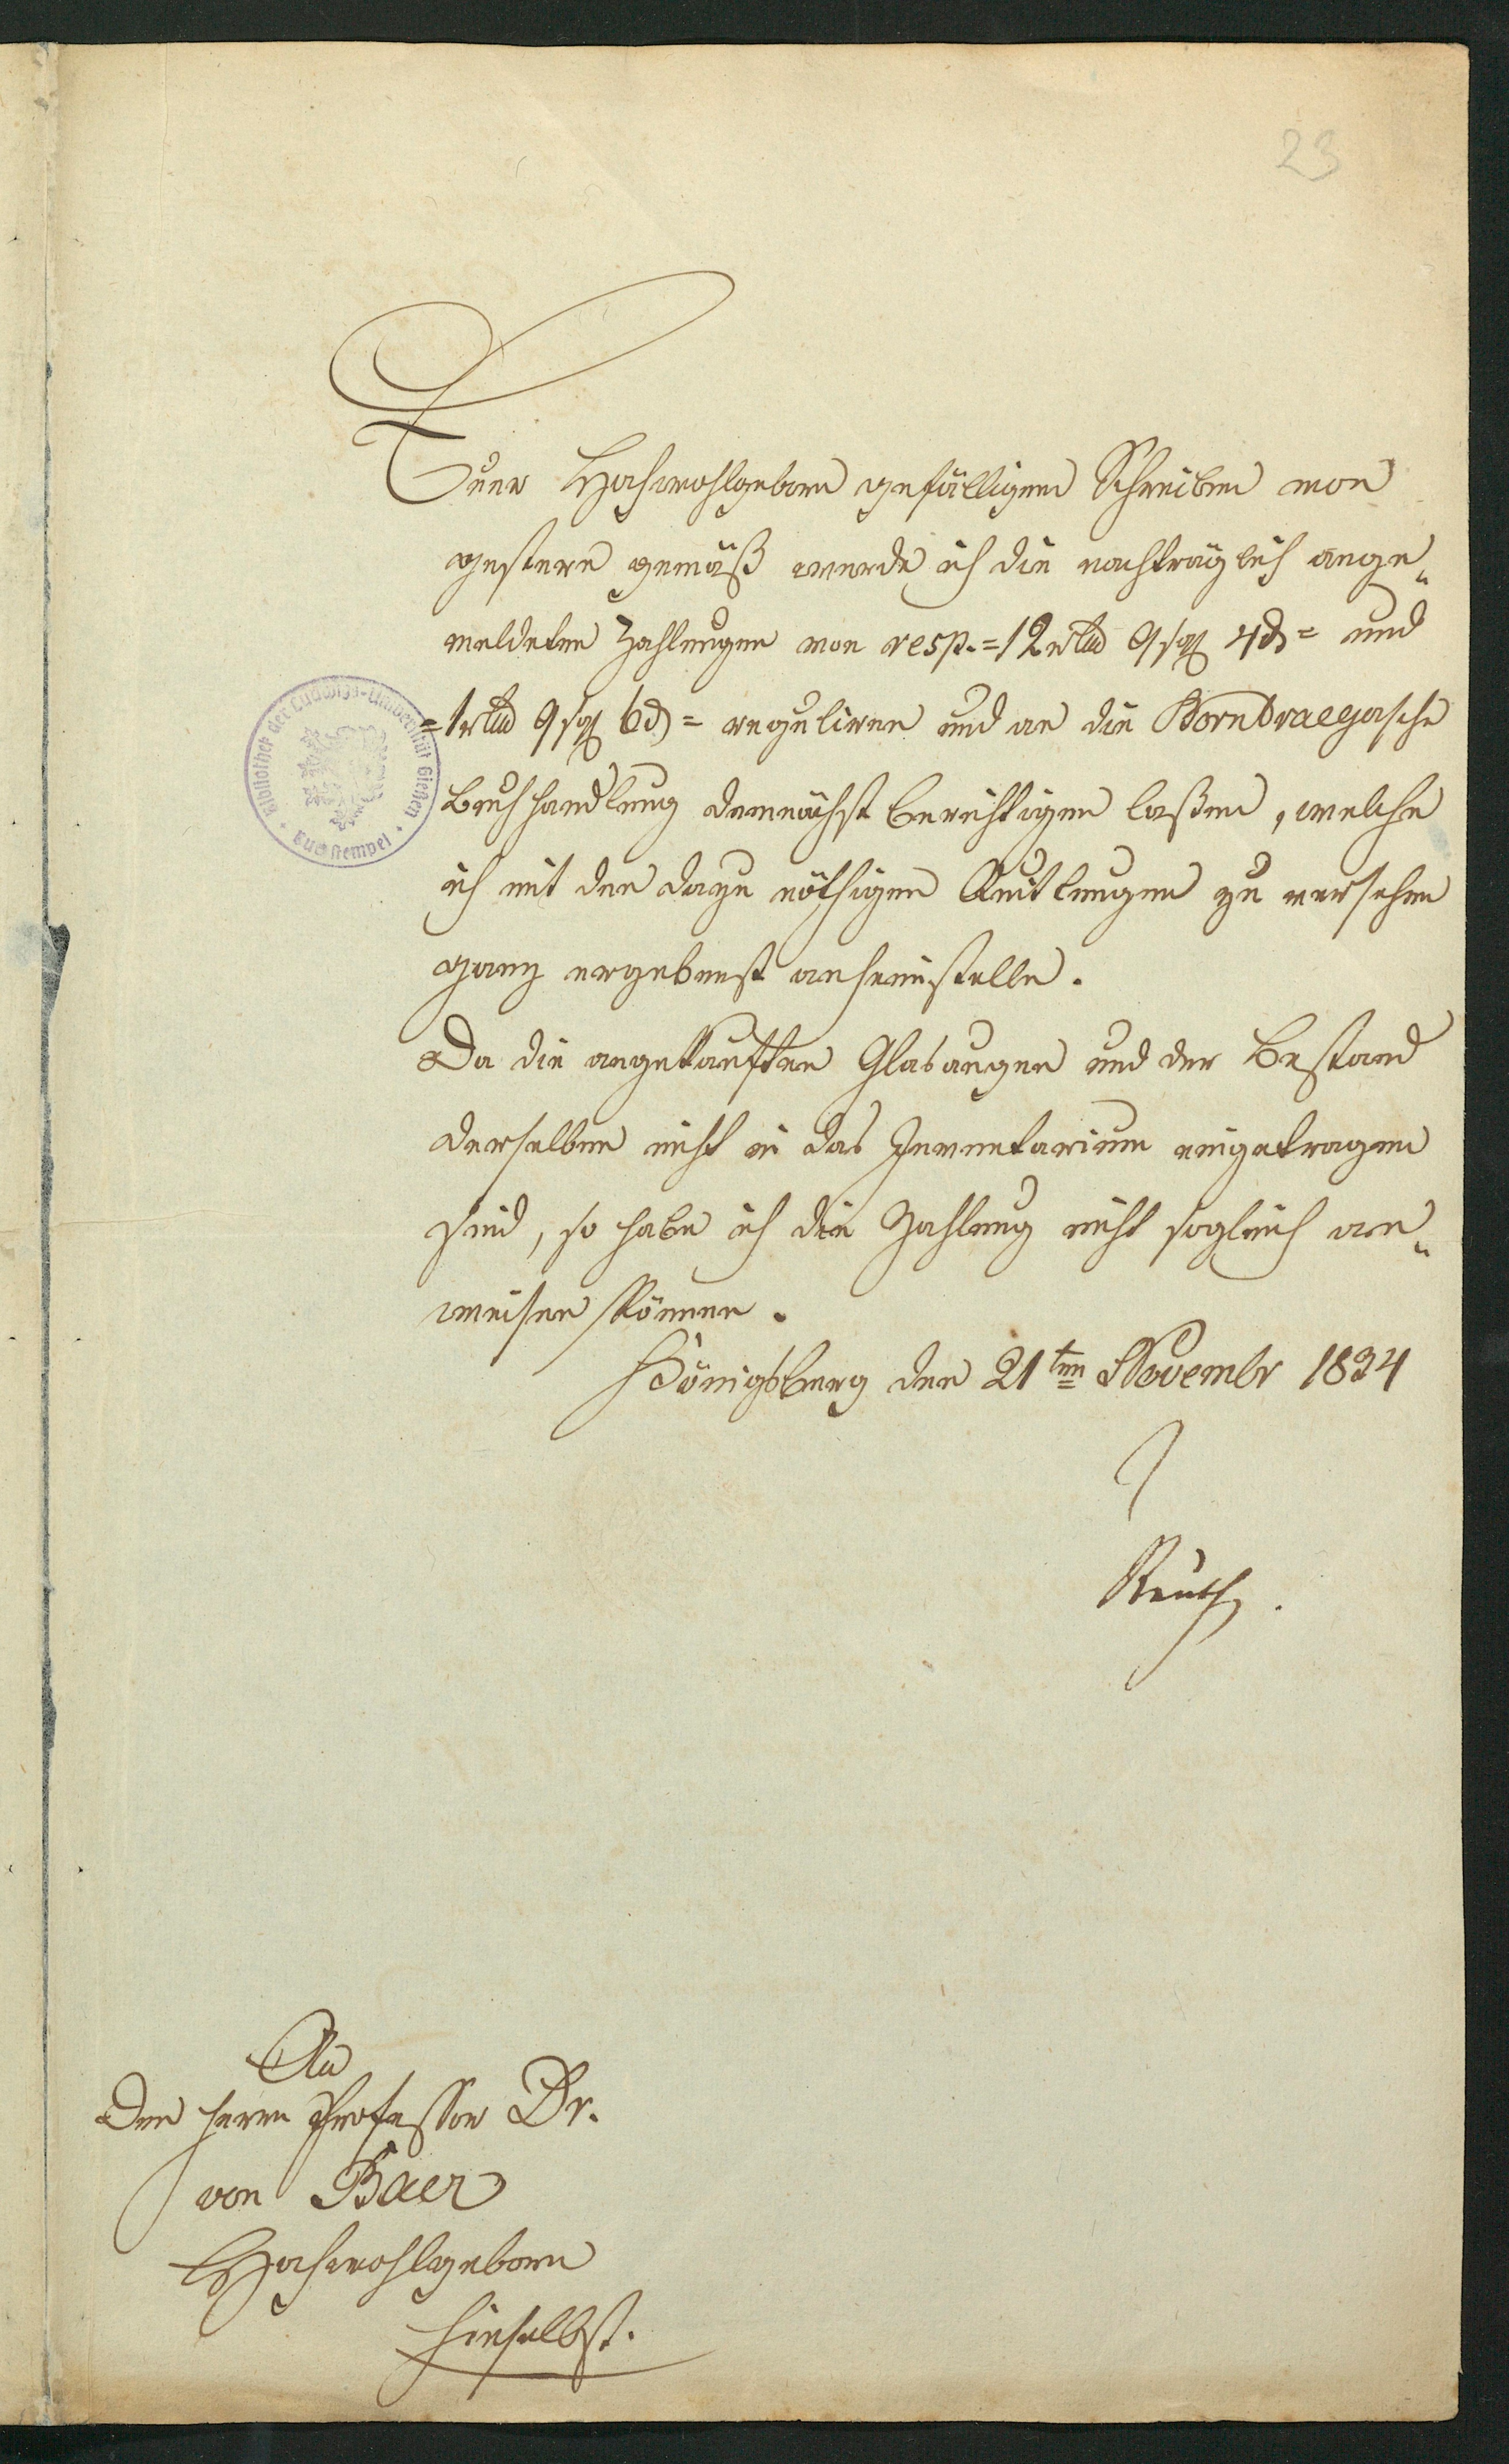 23
Euer Hochwohlgeboren gefälligem Schreiben von
gestern gemäß werde ich die nachträglich ange-
meldeten Zahlungen von resp. = 12 rtlr 9 sgr 4 d = und
= 1 rtlr 9 sgr 6 d = reguliren und an die Borntraegersche
Buchhandlung demnächst berichtigen laßen, welche
ich mit den dazu nöthigen Quitungen zu versehen
ganz ergebenst anheimstelle.
Da die angekauften Glasaugen und der Bestand
derselben nicht in das Inventarium eingetragen
sind, so habe ich die Zahlung nicht sogleich an-
weisen können.
Königsberg den 21ten Novembr 1834
Reusch.
An
den Herrn Professor Dr.
von Baer
Hochwohlgeboren
hieselbst.
Bibliothek der Ludwigs-Universität Gießen